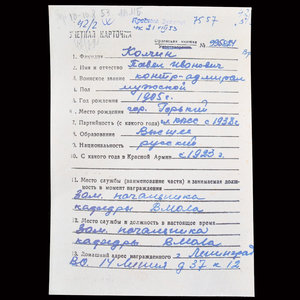 К57
42/2
21 53
УЧЕТНАЯ КАРТОЧКА
1. Фамилия Колчин
2. Имя и отчество Павел Иванович
3. Воинское звание контр-адмирал
4. Пол мужской
5. Год рождения 1905 г.
6. Место рождения гор. Горький
7. Партийность (с какого года) чл. КПСС с 1932 г.
8. Образование высшее
9. Национальность русский
10. С какого года в Красной Армии с 1923 г.
11. Место службы (наименование части) и занимаемая долж-
ность в момент награждения
зам. начальника
кафедры ВМОЛА
12. Место службы и должность в настоящее время
зам. начальника
кафедры ВМОЛА
13. Домашний адрес награжденного г. Ленинград
В.О. 14 линия д 37 к 12